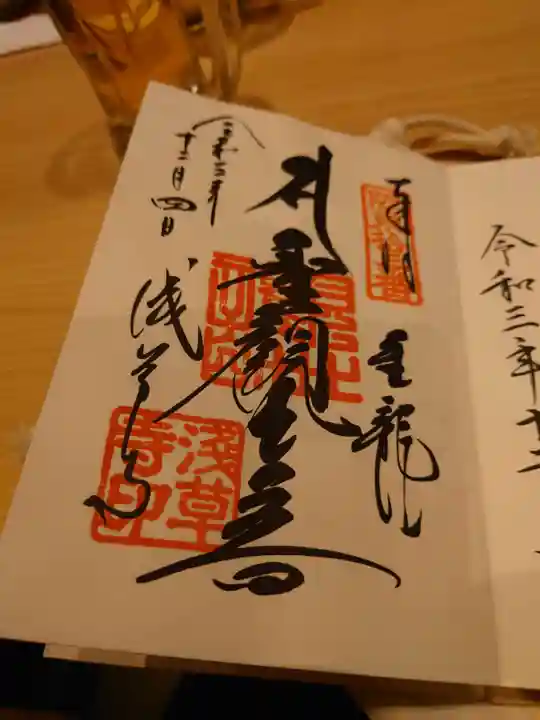 奉拝
金龍山
聖観世音
浅草寺
浅草寺印
令和三年
十二月四日
令和三年十二